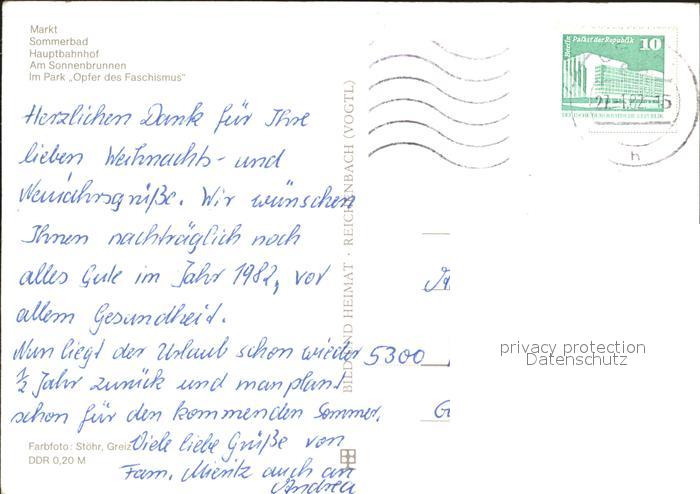 Markt
Sommerbad
Hauptbahnhof
Am Sonnenbrunnen
Im Park „Opfer des Faschismus"
Herzlichen Dank für Ihre
lieben Weihnachts- und
Neujahrsgrüße. Wir wünschen
Ihnen nachträglich noch
alles Gute im Jahr 1982, vor
allem Gesundheit.
Nun liegt der Urlaub schon wieder
1/2 Jahr zurück und man plant
schon für den kommenden Sommer.
Viele liebe Grüße von
Fam. Mieritz auch an
Andrea
Farbfoto: Stöhr, Greiz
DDR 0,20 M
BILD UND HEIMAT · REICHENBACH (VOGTL)
Berlin Palast der Republik 10
DEUTSCHE DEMOKRATISCHE REPUBLIK
h
5300
privacy protection
Datenschutz